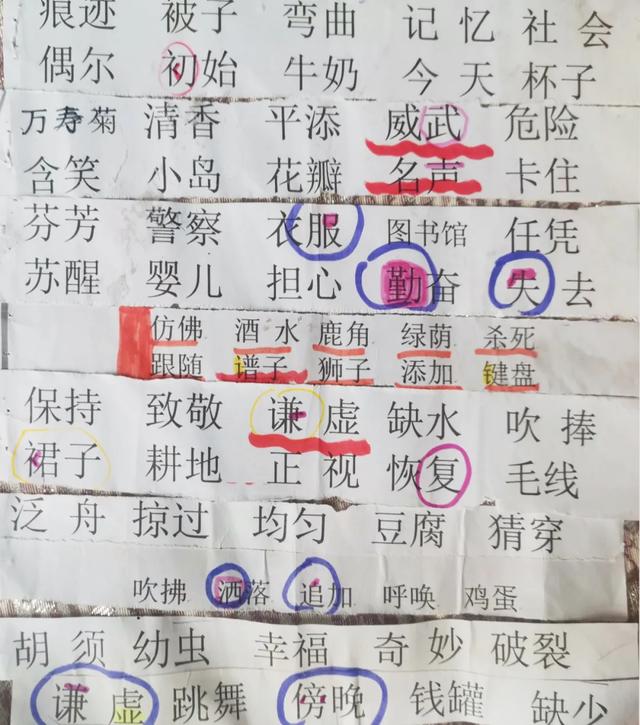 痕迹 被子 弯曲 记忆 社会
偶尔 初始 牛奶 今天 杯子
万寿菊 清香 平添 威武 危险
含笑 小岛 花瓣 名声 卡住
芬芳 警察 衣服 图书馆 任凭
苏醒 婴儿 担心 勤奋 失去
仿佛 酒水 鹿角 绿荫 杀死
跟随 谱子 狮子 添加 键盘
保持 致敬 谦虚 缺水 吹捧
裙子 耕地 正视 恢复 毛线
泛舟 掠过 均匀 豆腐 猜穿
吹拂 洒落 追加 呼唤 鸡蛋
胡须 幼虫 幸福 奇妙 破裂
谦虚 跳舞 傍晚 钱罐 缺少